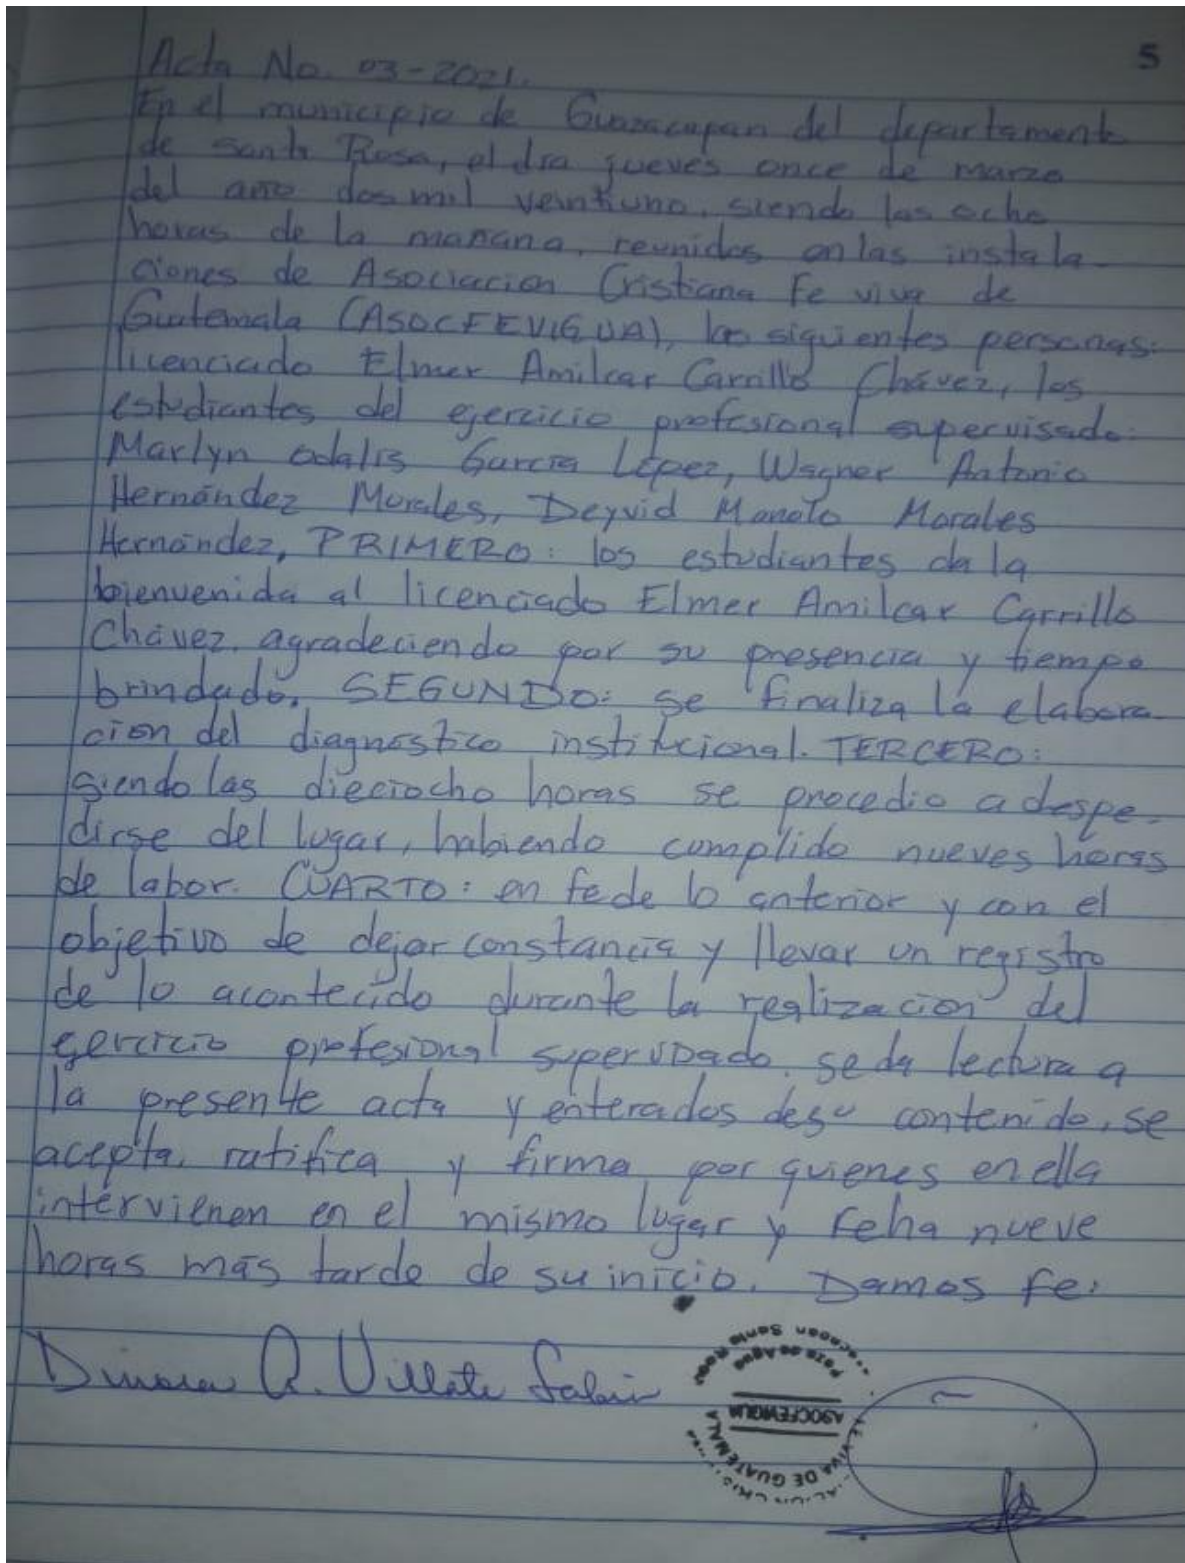 5
Acta No. 03-2021.
En el municipio de Guazacapan del departamento
de Santa Rosa, el dia jueves once de marzo
del año dos mil veintiuno, siendo las ocho
horas de la mañana, reunidos en las instala
ciones de Asociacion Cristiana Fe viva de
Guatemala (ASOCFEVIGUA), las siguientes personas:
licenciado Elmer Amilcar Carrillo Chávez, los
estudiantes del ejercicio profesional supervisado:
Marlyn Odalis Garcia López, Wagner Antonio
Hernández Morales, Deyvid Manolo Morales
Hernández, PRIMERO: los estudiantes da la
bienvenida al licenciado Elmer Amilcar Carrillo
Chávez, agradeciendo por su presencia y tiempo
brindado. SEGUNDO: se finaliza la elabora
cion del diagnostico institucional. TERCERO:
siendo las dieciocho horas se procedio a despe-
dirse del lugar, habiendo cumplido nueves horas
de labor. CUARTO: en fe de lo anterior y con el
objetivo de dejar constancia y llevar un registro
de lo acontecido durante la realizacion del
ejercicio profesional supervisado, se da lectura a
la presente acta y enterados de su contenido, se
acepta, ratifica y firma por quienes en ella
intervienen en el mismo lugar y feha nueve
horas más tarde de su inicio. Damos fe:
A. Villate
Santa Rosa
Poza de Agua
ASOCFEVIGUA
FE VIVA DE GUATEMALA